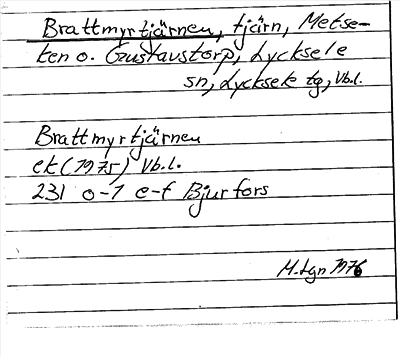 Brattmyrtjärnen, tjärn, Metse-
ken o. Gustavstorp, Lycksele
sn, Lycksele tg, Vb.l.
Brattmyrtjärnen
ek (1975) Vb.l.
231 0-1 e-f Bjurfors
M.Lgn 1976